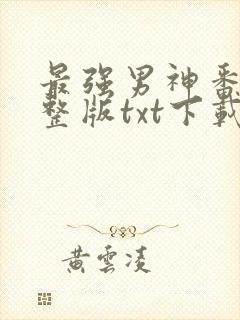 最强男神番
整版txt下載
黄雲凌